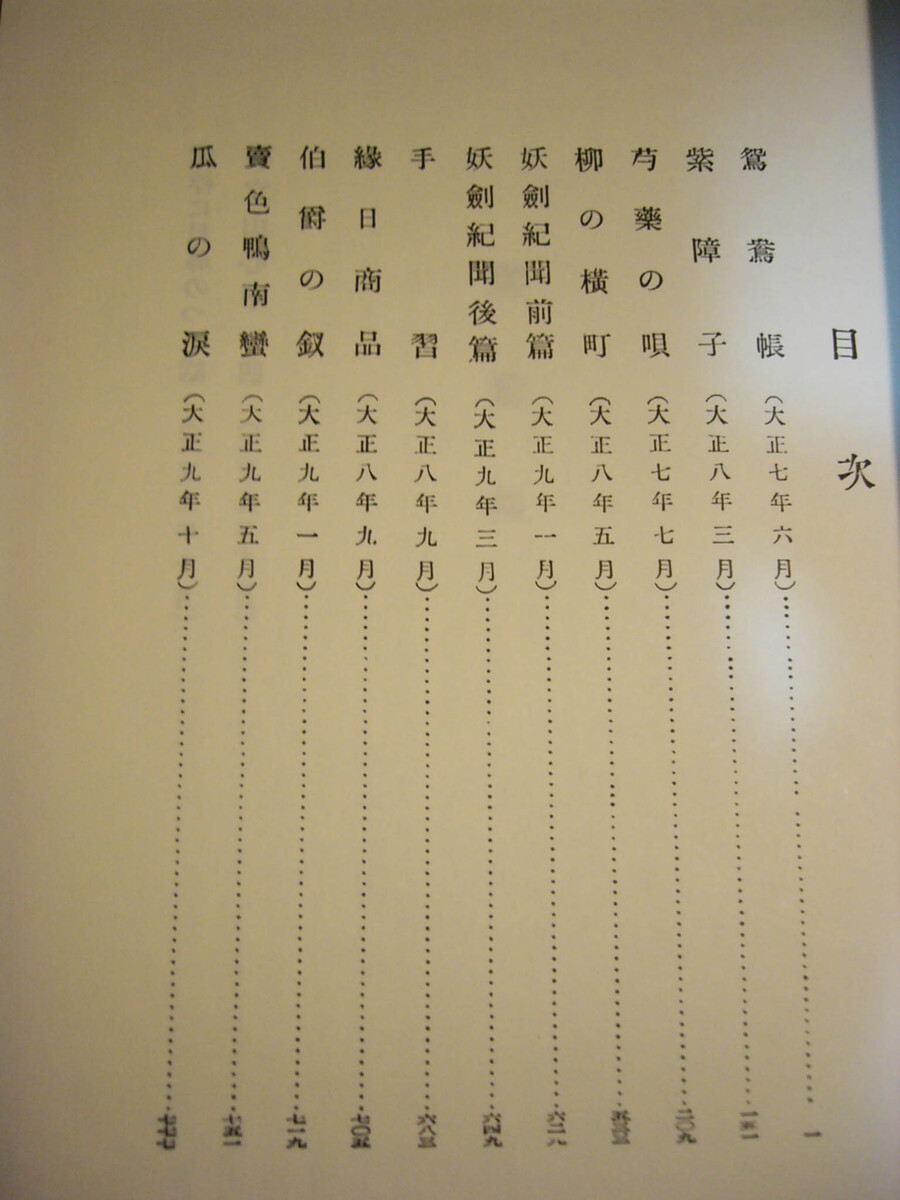 目次
鴛鴦帳(大正七年六月)……一
紫障子(大正八年三月)……一五一
芍藥の唄(大正七年七月)……二〇九
柳の横町(大正八年五月)……
妖劍紀聞前篇(大正九年一月)……六二八
妖劍紀聞後篇(大正九年三月)……六四九
手習(大正八年九月)……六八三
緣日商品(大正八年九月)……七〇五
伯爵の釵(大正九年一月)……七一九
賣色鴨南蠻(大正九年五月)……七五一
瓜の淚(大正九年十月)……七七七